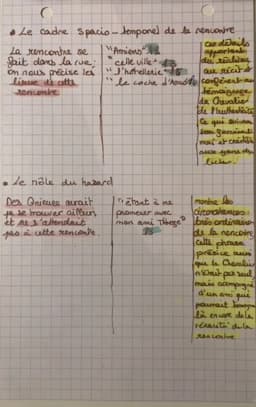 • Le cadre spacio-temporel de la rencontre
La rencontre se
fait dans la rue,
on nous précise les
lieux de cette
rencontre
"Amiens"
"cette ville"
"l'hôtellerie"
"le coche d'Arras"
ces détails
apportent
du réalisme
au récit et
confèrent au
témoignage
du Chevalier
de l'authenticité
Ce qui
aux yeux du
lecteur.
• Le rôle du hasard
Des Grieux aurait
pu se trouver ailleurs
et ne s'attendait
pas à cette rencontre.
"étant à me
promener avec
mon ami Tiberge"
montre les
circonstances
très ordinaires
de la rencontre,
cette phrase
précise aussi
que le Chevalier
n'était pas seul,
mais accompagné
d'un ami qui
pourrait
là encore de la
véracité de la
rencontre